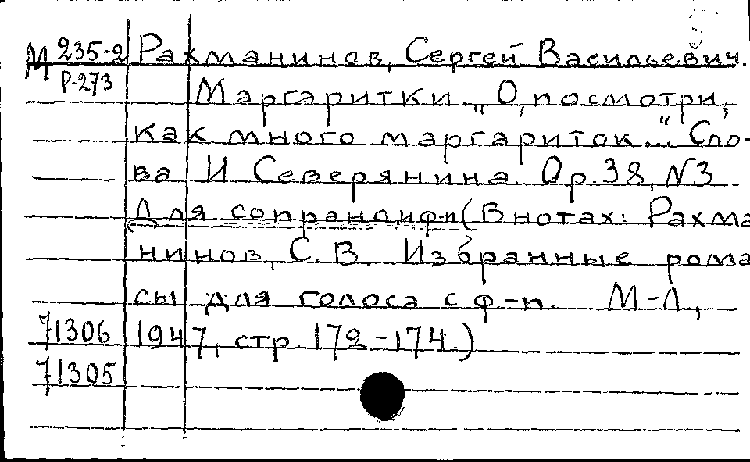 М 235-2 Рахманинов, Сергей Васильевич.
Р-273 Маргаритки. „О, посмотри,
как много маргариток..." Сло-
ва И Северянина. Ор.38, N3
Для сопрано и ф-п (В нотах: Рахма
нинов, С. В. Избранные рома
сы для голоса с ф-п. М-Л.,
71306 1947, стр. 172-174.)
71305